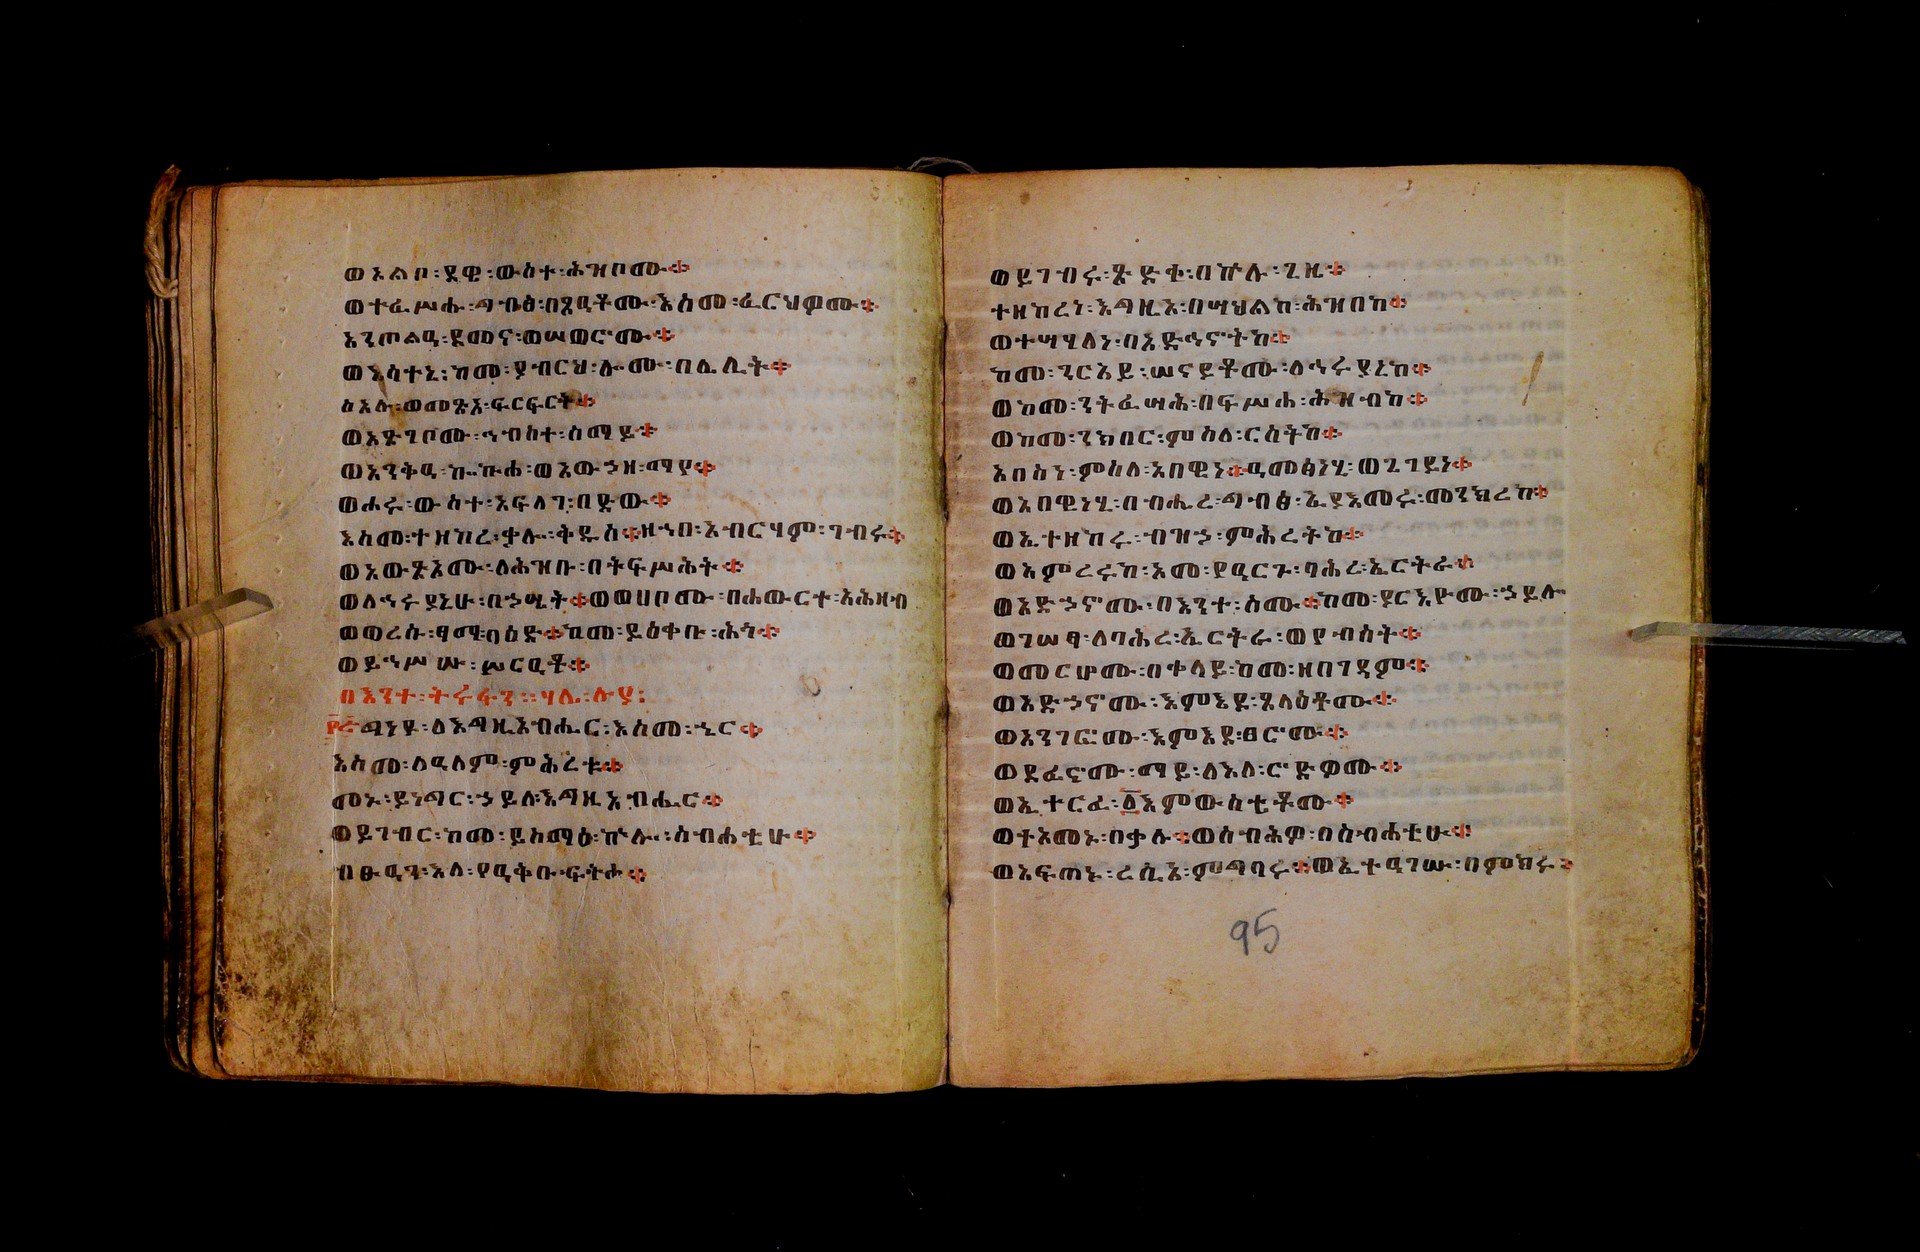 ወአልቦ፡ደዊ፡ውስተ፡ሕዝቦሙ።
ወተፈሥሑ፡ግብፅ፡በፀዓቶሙ፡እስመ፡ፈርህዎሙ።
አንጦልዓ፡ደመና፡ወሠወሮሙ።
ወእሳተኒ፡ከመ፡ያብርህ፡ሎሙ፡በሌሊት።
ሰአሉ፡ወመጽአ፡ፍርፍርት።
ወአጽገቦሙ፡ኅብስተ፡ሰማይ።
ወአንቅዓ፡ኰኵሐ፡ወአውኃዘ፡ማየ።
ወሐሩ፡ውስተ፡አፍላገ፡በድው።
እስመ፡ተዘከረ፡ቃሎ፡ቅዱስ።ዘኀበ፡አብርሃም፡ገብሩ።
ወአውጽአሙ፡ለሕዝቡ፡በትፍሥሕት።
ወለኅሩያኒሁ፡በኃሤት።ወወሀቦሙ፡በሐውርተ፡አሕዛብ
ወወረሱ፡ፃማ፡ባዕድ።ከመ፡ይዕቀቡ፡ሕጎ።
ወይኅሥሡ፡ሥርዓቶ።
በእንተ፡ትሩፋን።ሃሌ፡ሉያ፡
፻፭ግነዩ፡ለእግዚአብሔር፡እስመ፡ኄር።
እስመ፡ለዓለም፡ምሕረቱ።
መኑ፡ይነግር፡ኃይለ፡እግዚአብሔር።
ወይገብር፡ከመ፡ይስማዕ፡ኵሎ፡ስብሐቲሁ።
ብፁዓን፡እለ፡የዓቅቡ፡ፍትሐ።
ወይገብሩ፡ጽድቀ፡በኵሉ፡ጊዜ።
ተዘከረነ፡እግዚኦ፡በሣህልከ፡ሕዝበከ።
ወተሣሃለነ፡በአድኅኖትከ።
ከመ፡ንርአይ፡ሠናይቶሙ፡ለኅሩያኒከ።
ወከመ፡ንትፈሣሕ፡በፍሥሐ፡ሕዝብከ።
ወከመ፡ንክበር፡ምስለ፡ርስትከ።
አበስነ፡ምስለ፡አበዊነ።ዓመፅነሂ፡ወጌገይነ።
ወአበዊነሂ፡በብሔረ፡ግብፅ፡ኢያእመሩ፡መንክረከ።
ወኢተዘከሩ፡ብዝኃ፡ምሕረትከ።
ወአምረሩከ፡አመ፡የዓርጉ፡ባሕረ፡ኤርትራ።
ወአድኃኖሙ፡በእንተ፡ስሙ።ከመ፡ያርእዮሙ፡ኃይሎ
ወገሠፃ፡ለባሕረ፡ኤርትራ፡ወየብስት።
ወመርሆሙ፡በቀላይ፡ከመ፡ዘበገዳም።
ወአድኃኖሙ፡እምእደ፡ጸላዕቶሙ።
ወአንገፎሙ፡እምእደ፡ፀሮሙ።
ወደፈኖሙ፡ማይ፡ለእለ፡ሮድዎሙ።
ወኢተርፈ፡፩እምውስቴቶሙ።
ወተአመኑ፡በቃሉ።ወሰብሕዎ፡በስብሐቲሁ።
ወአፍጠኑ፡ረሲአ፡ምግባሩ።ወኢተዓገሡ፡በምክሩ።
95